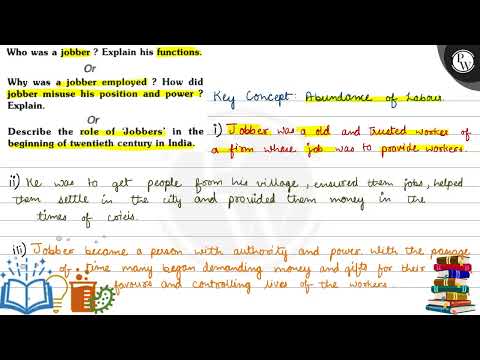 Who was a jobber ? Explain his functions.
Or
Why was a jobber employed ? How did
jobber misuse his position and power ?
Explain.
Or
Describe the role of 'Jobbers' in the
beginning of twentieth century in India.
PW
Key Concept: Abundance of Labour
i) Jobber was a old and trusted worker of
a firm whose job was to provide workers.
ii) He was to get people from his village, ensured them jobs, helped
them settle in the city and provided them money in the
times of crisis.
iii) Jobber became a person with authority and power with the passage
of time many began demanding money and gifts for their
favours and controlling lives of the workers.